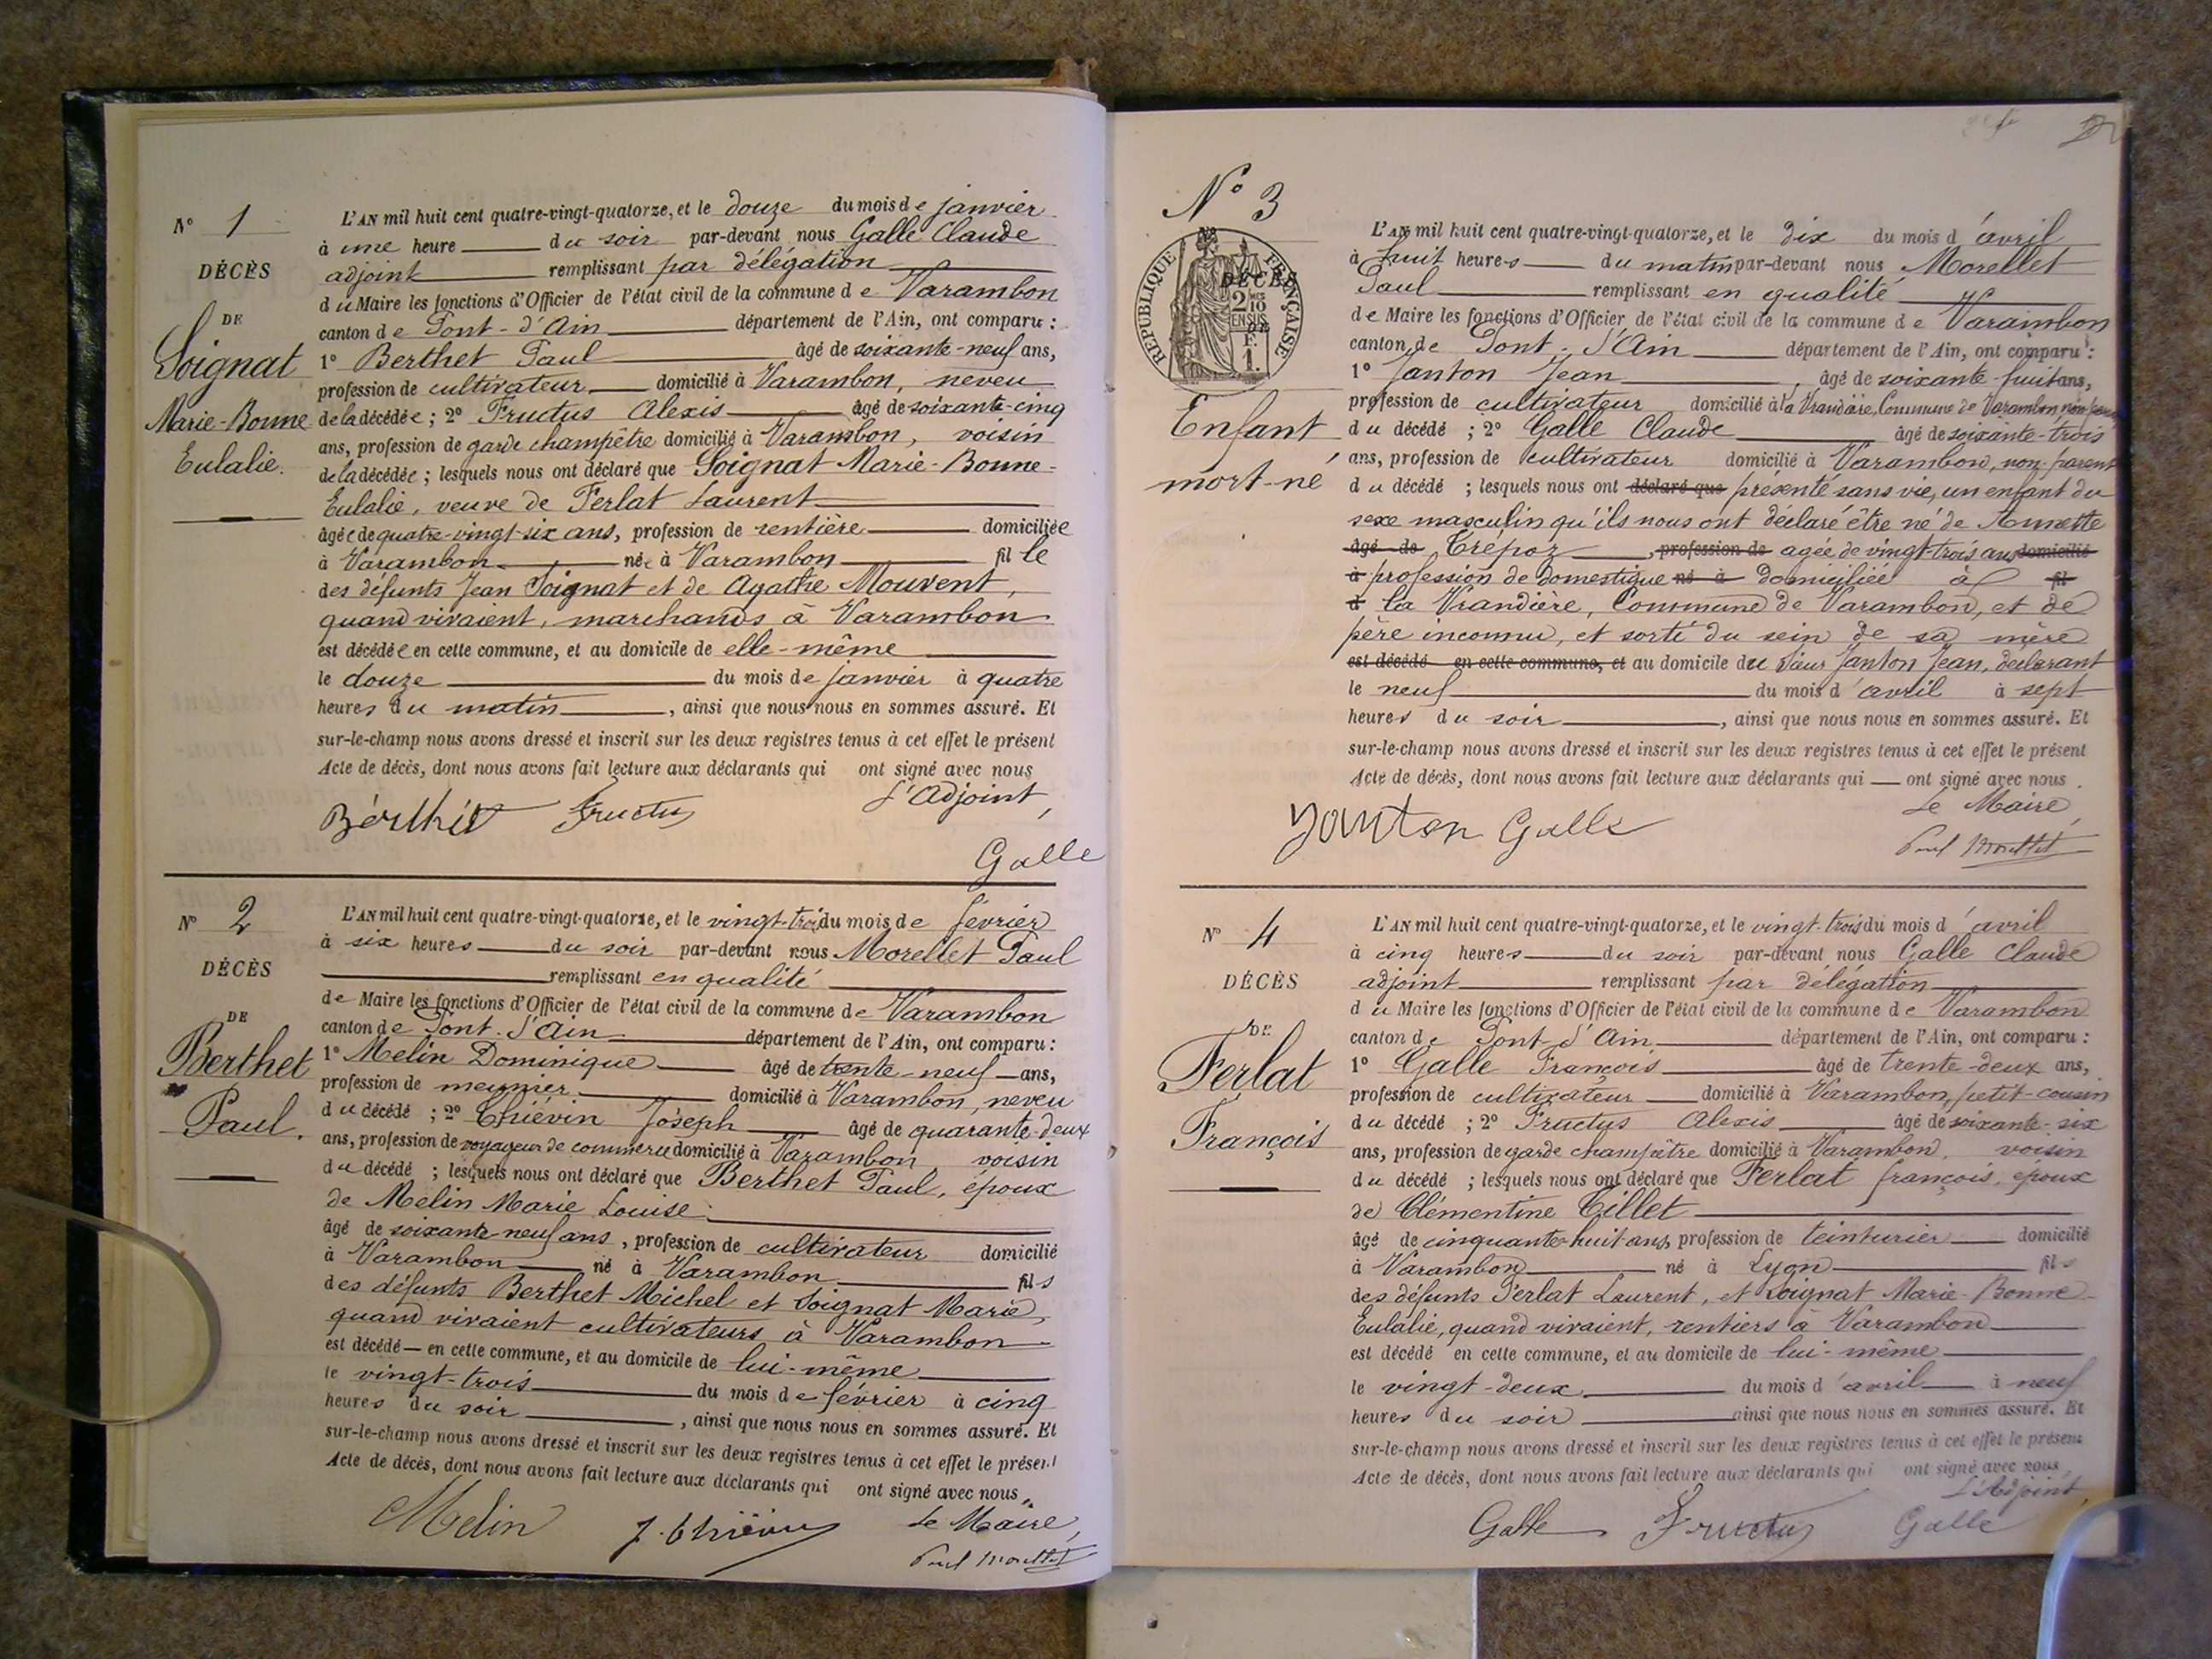 N° 1
DÉCÈS
DE
Soignat
Marie-Bonne
Eulalie.
L'AN mil huit cent quatre-vingt-quatorze, et le douze du mois de janvier
à une heure du soir par-devant nous Galle Claude
adjoint remplissant par délégation
du Maire les fonctions d'Officier de l'état civil de la commune de Varambon
canton de Pont-d'Ain département de l'Ain, ont comparu :
1° Berthet Paul âgé de soixante-neuf ans,
profession de cultivateur domicilié à Varambon, neveu
de la décédée ; 2° Fructus Alexis âgé de soixante-cinq
ans, profession de garde champêtre domicilié à Varambon, voisin
de la décédée ; lesquels nous ont déclaré que Soignat Marie-Bonne-
Eulalie, veuve de Ferlat Laurent
âgée de quatre-vingt-six ans, profession de rentière domiciliée
à Varambon née à Varambon fille
des défunts Jean Soignat et de Agathe Mouvent,
quand vivaient, marchands à Varambon
est décédée en cette commune, et au domicile de elle-même
le douze du mois de janvier à quatre
heures du matin, ainsi que nous nous en sommes assuré. Et
sur-le-champ nous avons dressé et inscrit sur les deux registres tenus à cet effet le présent
Acte de décès, dont nous avons fait lecture aux déclarants qui ont signé avec nous
L'Adjoint,
Bérthét Fructus
Galle
N° 2
DÉCÈS
DE
Berthet
Paul.
L'AN mil huit cent quatre-vingt-quatorze, et le vingt-trois du mois de février
à six heures du soir par-devant nous Morellet Paul
remplissant en qualité
de Maire les fonctions d'Officier de l'état civil de la commune de Varambon
canton de Pont-d'Ain département de l'Ain, ont comparu :
1° Melin Dominique âgé de trente-neuf ans,
profession de meunier domicilié à Varambon, neveu
du décédé ; 2° Thiévin Joseph âgé de quarante-deux
ans, profession de voyageur de commerce domicilié à Varambon, voisin
du décédé ; lesquels nous ont déclaré que Berthet Paul, époux
de Melin Marie Louise
âgé de soixante-neuf ans, profession de cultivateur domicilié
à Varambon né à Varambon fils
des défunts Berthet Michel et Soignat Marie,
quand vivaient cultivateurs à Varambon
est décédé en cette commune, et au domicile de lui-même
le vingt-trois du mois de février à cinq
heures du soir, ainsi que nous nous en sommes assuré. Et
sur-le-champ nous avons dressé et inscrit sur les deux registres tenus à cet effet le présent
Acte de décès, dont nous avons fait lecture aux déclarants qui ont signé avec nous
Melin J. Thiévin Le Maire,
Paul Morellet
N° 3
RÉPUBLIQUE FRANÇAISE
DÉCÈS
2/10
EN SUS
F.
1.
Enfant
mort-né
L'AN mil huit cent quatre-vingt-quatorze, et le dix du mois d'avril
à huit heures du matin par-devant nous Morellet
Paul remplissant en qualité
de Maire les fonctions d'Officier de l'état civil de la commune de Varambon
canton de Pont-d'Ain département de l'Ain, ont comparu :
1° Janton Jean, âgé de soixante-huit ans,
profession de cultivateur domicilié à la Vrandière, Commune de Varambon, non parent
du décédé ; 2° Galle Claude âgé de soixante-trois
ans, profession de cultivateur domicilié à Varambon, non-parent
du décédé ; lesquels nous ont déclaré que présenté sans vie, un enfant du
sexe masculin qu'ils nous ont déclaré être né de Annette
âgé de Trépoz, profession de agée de vingt-trois ans domicilié
à profession de domestique né à domiciliée à fil
d la Vrandière, Commune de Varambon, et de
père inconnu, et sorti du sein de sa mère
est décédé en cette commune, et au domicile du Sieur Janton Jean, déclarant
le neuf du mois d'avril à sept
heures du soir, ainsi que nous nous en sommes assuré. Et
sur-le-champ nous avons dressé et inscrit sur les deux registres tenus à cet effet le présent
Acte de décès, dont nous avons fait lecture aux déclarants qui ont signé avec nous.
Le Maire,
Janton Galle
Paul Morellet
N° 4
DÉCÈS
DE
Ferlat
François
L'AN mil huit cent quatre-vingt-quatorze, et le vingt-trois du mois d'avril
à cinq heures du soir par-devant nous Galle Claude
adjoint remplissant par délégation
du Maire les fonctions d'Officier de l'état civil de la commune de Varambon
canton de Pont-d'Ain département de l'Ain, ont comparu :
1° Galle François âgé de trente-deux ans,
profession de cultivateur domicilié à Varambon, petit-cousin
du décédé ; 2° Fructus Alexis âgé de soixante-six
ans, profession de garde champêtre domicilié à Varambon, voisin
du décédé ; lesquels nous ont déclaré que Ferlat françois, époux
de Clémentine Tillet
âgé de cinquante-huit ans, profession de teinturier domicilié
à Varambon né à Lyon fils
des défunts Ferlat Laurent, et Soignat Marie-Bonne-
Eulalie, quand vivaient, rentiers à Varambon
est décédé en cette commune, et au domicile de lui-même
le vingt-deux du mois d'avril à neuf
heures du soir ainsi que nous nous en sommes assuré. Et
sur-le-champ nous avons dressé et inscrit sur les deux registres tenus à cet effet le présent
Acte de décès, dont nous avons fait lecture aux déclarants qui ont signé avec nous,
L'Adjoint,
Galle Fructus Galle